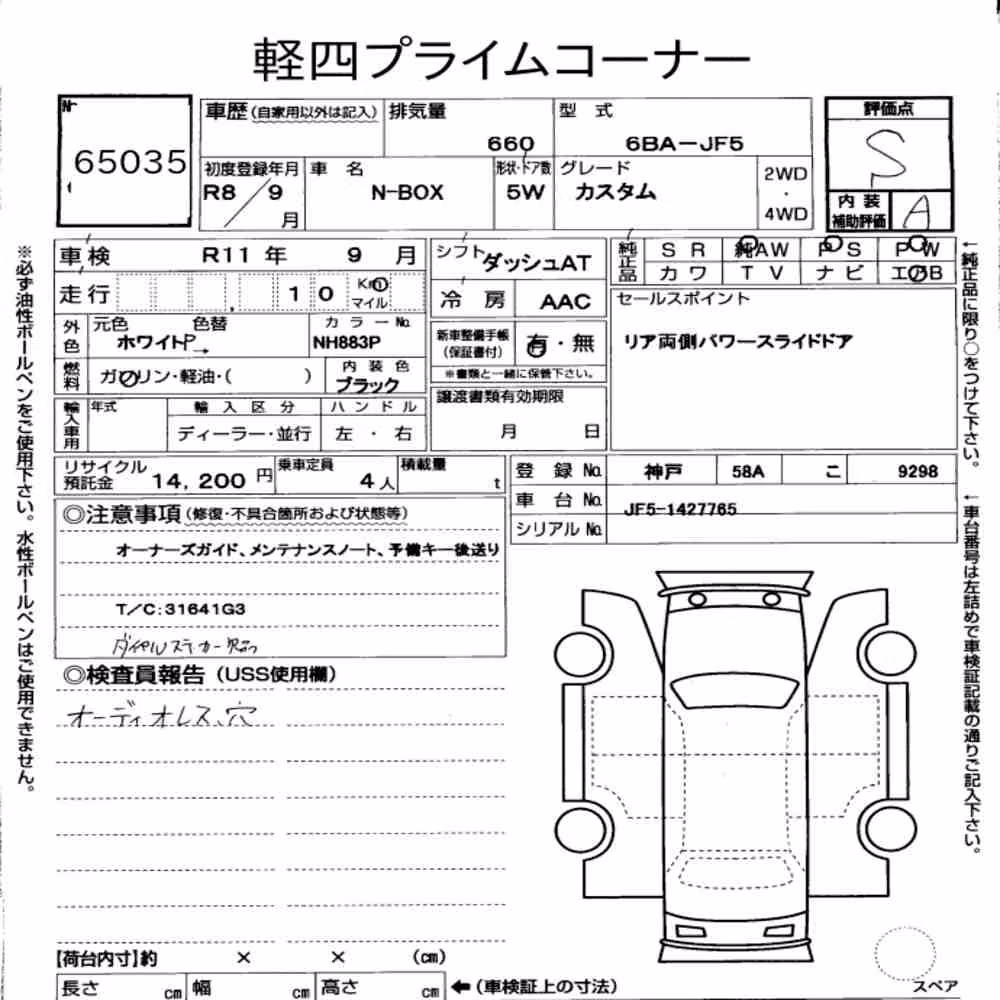 軽四プライムコーナー
№ 65035
車歴(自家用以外は記入)
排気量 660
型式 6BA-JF5
評価点 S
内装補助評価 A
初度登録年月 R8/9月
車名 N-BOX
形状・ドア数 5W
グレード カスタム
2WD・4WD
車検 R11年 9月
シフト ダッシュAT
純正品 SR 純AW PS PW
カワ TV ナビ エアB
走行 10 Km マイル
冷房 AAC
セールスポイント
リア両側パワースライドドア
外色 元色 ホワイトP 色替→
カラーNo. NH883P
新車整備手帳(保証書付) 有・無
※書類と一緒に保管下さい。
燃料 ガソリン・軽油・( )
内装色 ブラック
譲渡書類有効期限
月 日
輸入車用 年式 輸入区分 ハンドル
ディーラー・並行 左・右
リサイクル預託金 14,200円
乗車定員 4人
積載量 t
登録No. 神戸 58A こ 9298
車台No. JF5-1427765
シリアルNo.
◎注意事項(修復・不具合箇所および状態等)
オーナーズガイド、メンテナンスノート、予備キー後送り
T/C:31641G3
◎検査員報告(USS使用欄)
オーディオレス、穴
【荷台内寸】約 × × (cm)
長さ cm 幅 cm 高さ cm ←(車検証上の寸法)
スペア
※必ず油性ボールペンをご使用下さい。水性ボールペンはご使用できません。
←純正品に限り○をつけて下さい。
←車台番号は左詰めで車検証記載の通りご記入下さい。